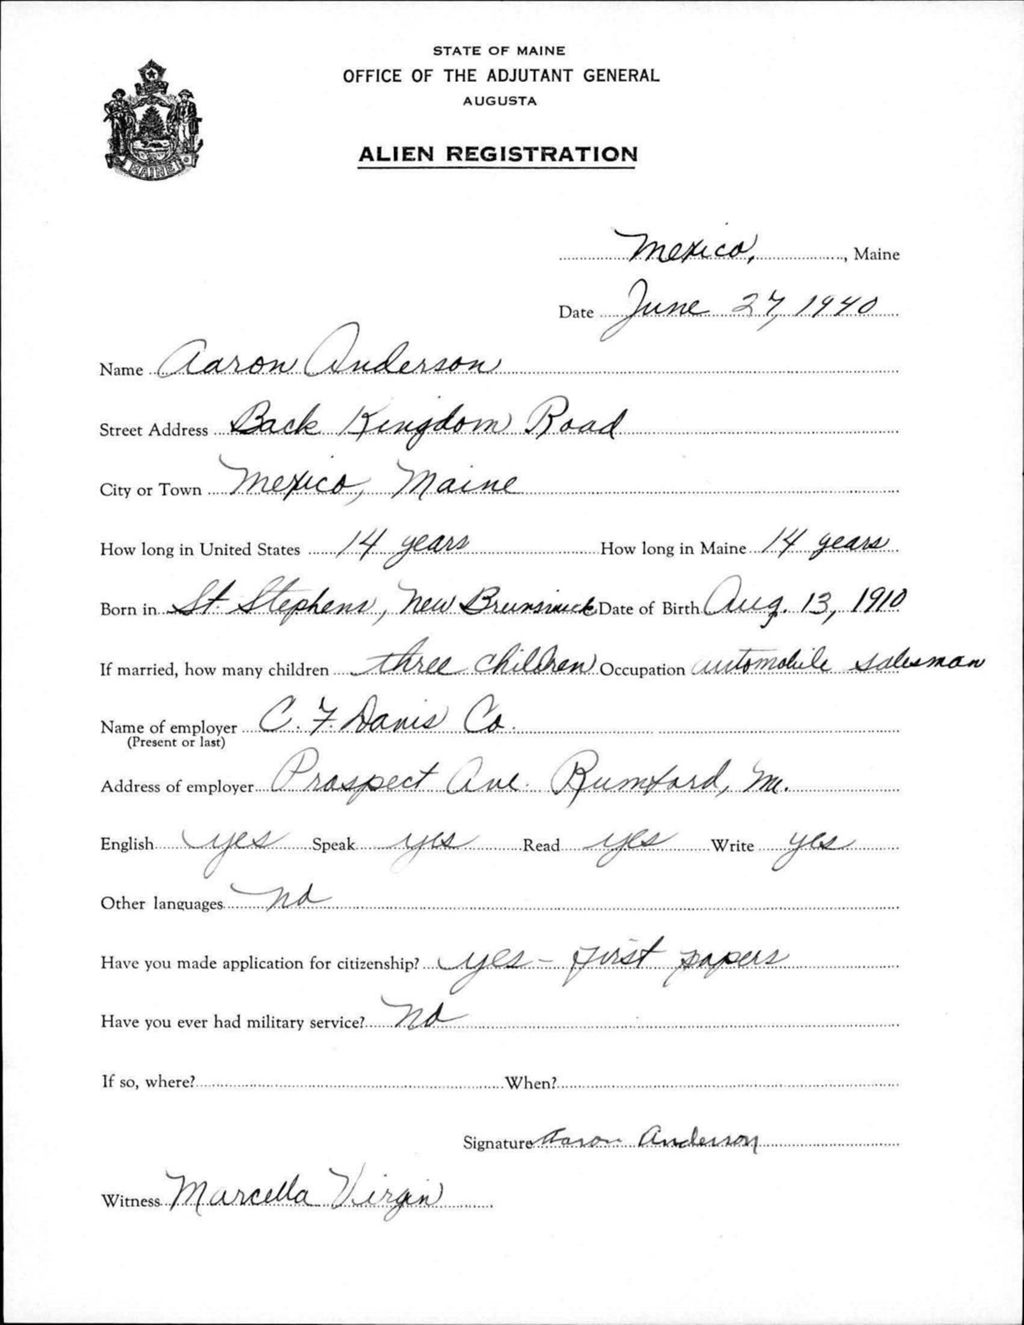 STATE OF MAINE
OFFICE OF THE ADJUTANT GENERAL
AUGUSTA
ALIEN REGISTRATION
MAINE
Mexico, , Maine
Date June 27, 1940
Name Aaron Anderson
Street Address Back Kingdom Road
City or Town Mexico, Maine
How long in United States 14 years How long in Maine 14 years
Born in St. Stephens, New Brunswick Date of Birth Aug. 13, 1910
If married, how many children three children Occupation automobile salesman
Name of employer C. F. Davis Co.
(Present or last)
Address of employer Prospect Ave. Rumford, Me.
English yes Speak yes Read yes Write yes
Other languages no
Have you made application for citizenship? yes - first papers
Have you ever had military service? No
If so, where? When?
Signature Aaron Anderson
Witness Marcella Virgin